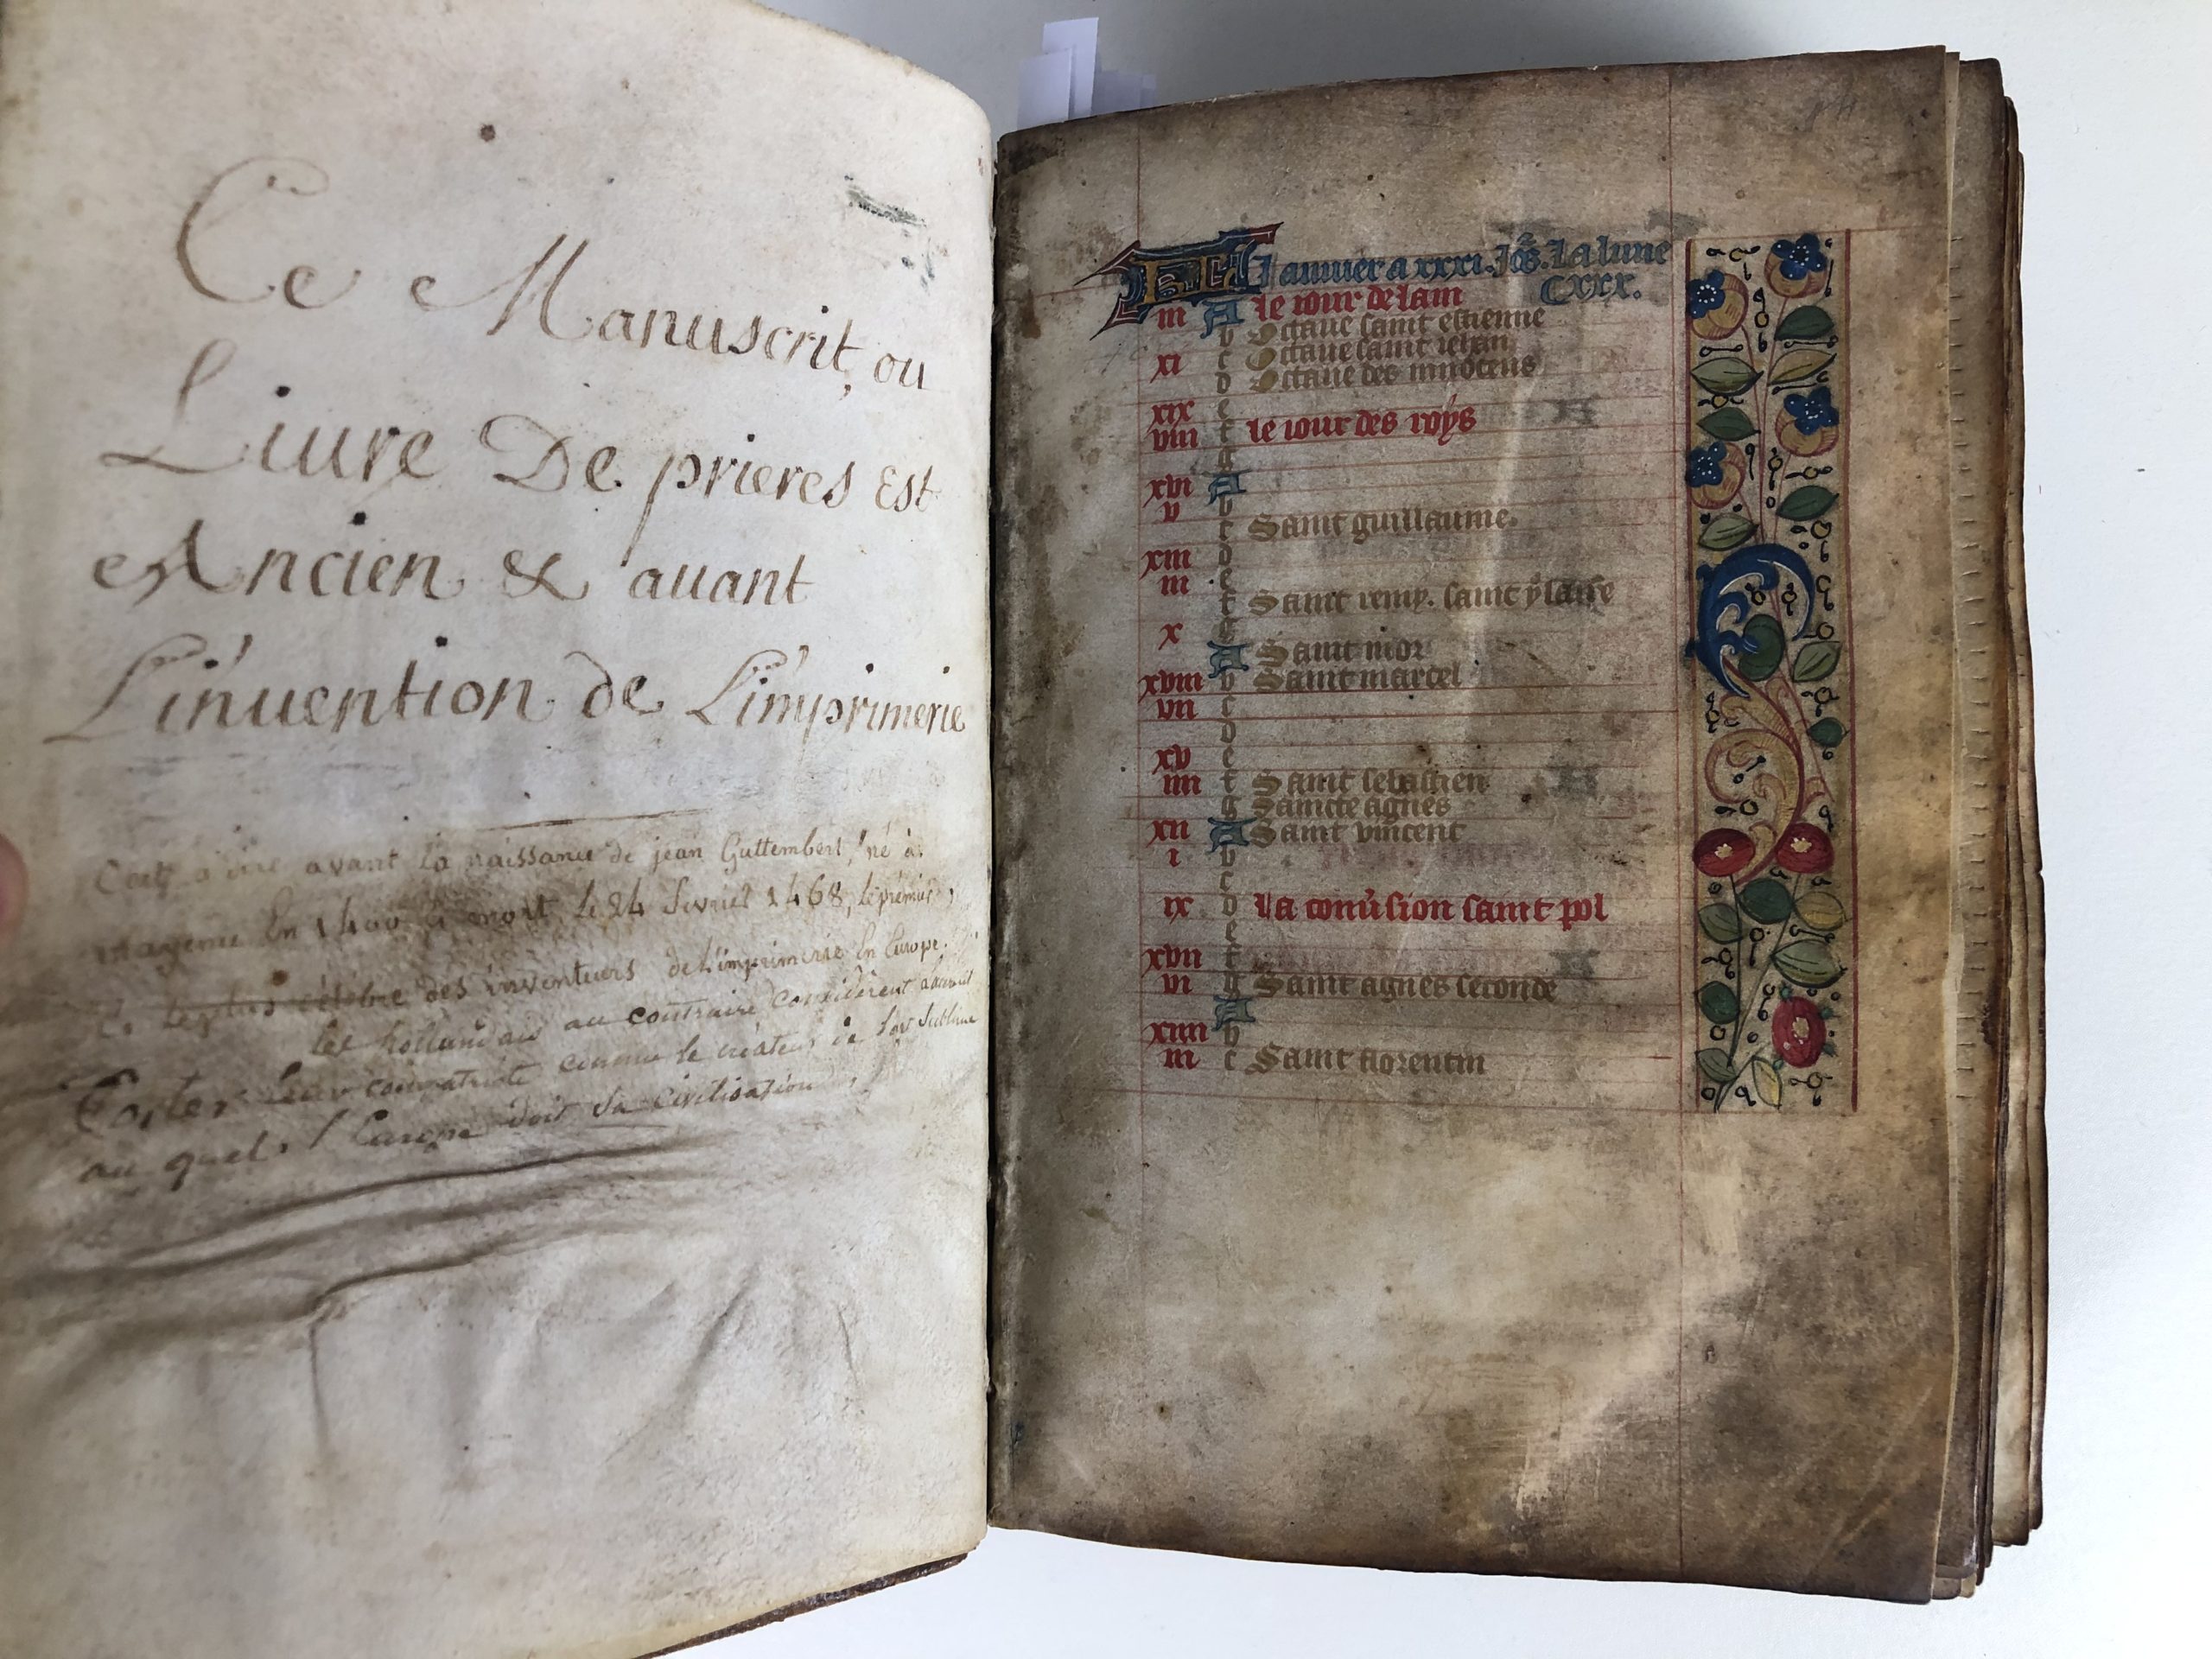 Ce Manuscrit, ou
Liure De prieres Est
Ancien & auant
L'inuention de L'imprimerie
avant la naissance de jean Guttemberl, né à
mayence En 1400 & mort le 24 fevriel 1468, le premier,
le plus célèbre des inventeurs de L'imprimerie En Europe.
les hollandais au contraire considèrent
Coster leur compatriote comme le créateur de l'art sublime
au quel l'Europe doit sa civilisation
KL Januier a xxxi. Jo^rs. La lune
C xxx.
iii A le iour de lan
b Octaue saint estienne
xi c Octaue saint iehan
d Octaue des innocens
xix e
viii f le iour des roys
g
xvi A
v b
c Saint guillaume.
xiii d
ii e
f Saint remy. saint ylaire
x g
A Saint mor
xviii b Saint marcel
vii c
d
xv e
iiii f Saint sebastien
g Saincte agnes
xii A Saint vincent
i b
c
ix d La conu̾sion saint pol
e
xvii f
vi g Saint agnes seconde
A
xiiii b
iii c Saint florentin